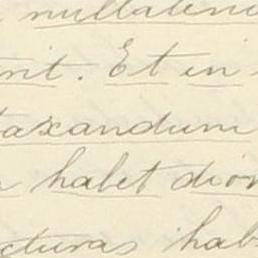 nullaten
rit. Et in
taxandum
habet dion
cturas hab